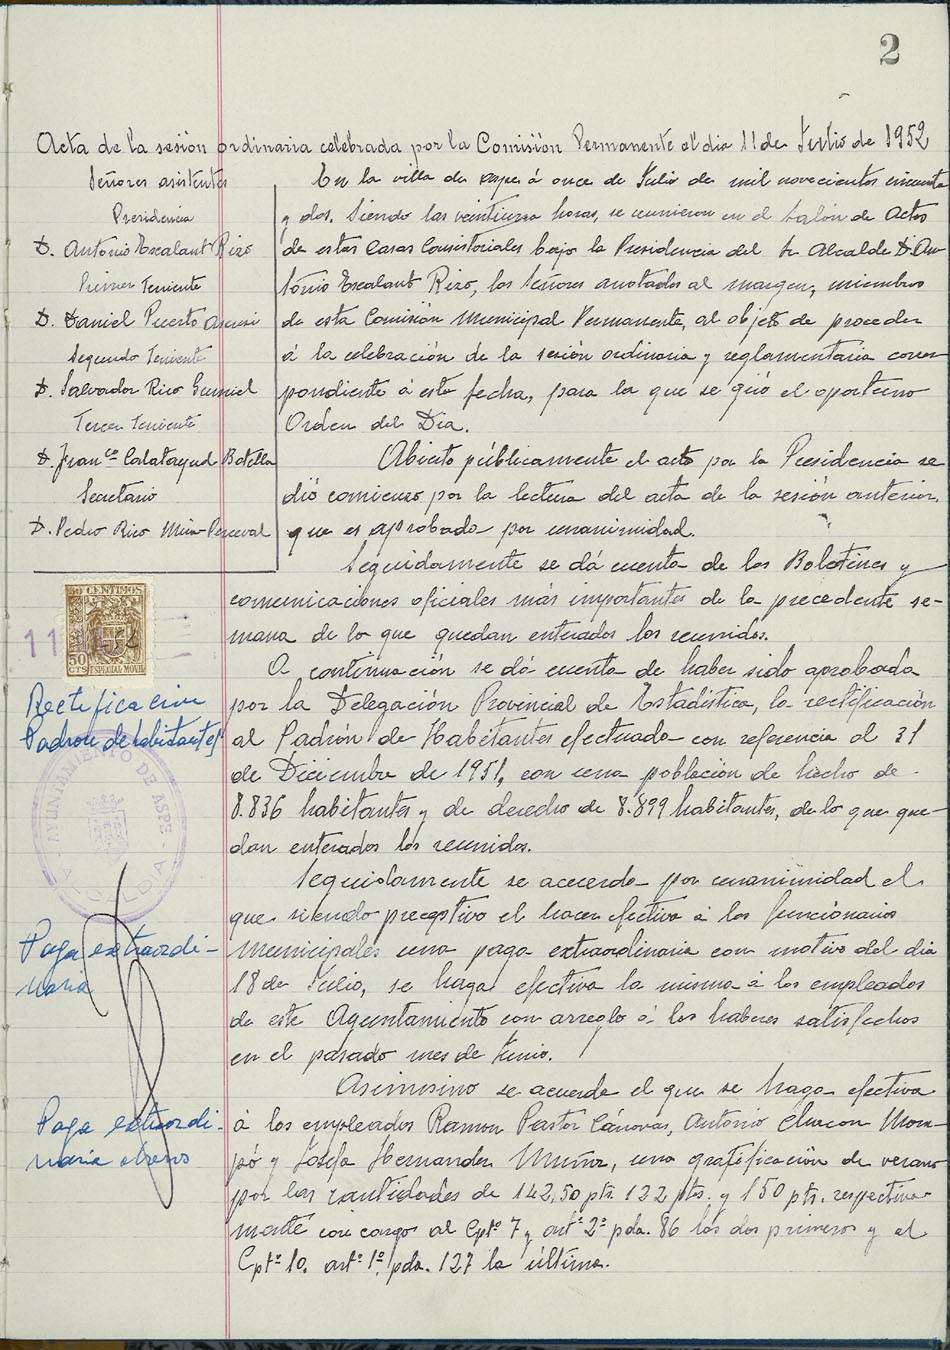 2
Acta de la sesión ordinaria celebrada por la Comisión Permanente el dia 11 de Julio de 1952
Señores asistentes
Presidencia
D. Antonio Escalant Rizo
Primer Teniente
D. Daniel Puerto Asensi
Segundo Teniente
D. Salvador Rico Gumiel
Tercer Teniente
D. Franco Calatayud Botella
Secretario
D. Pedro Rico Mira-Perceval
En la villa de Aspe á once de Julio de mil novecientos cincuenta
y dos. Siendo las veintiuna horas, se reunieron en el Salón de Actos
de estas Casas Consistoriales bajo la Presidencia del Sr Alcalde D. An
tonio Escalant Rizo, los Señores anotados al margen, miembros
de esta Comisión Municipal Permanente, al objeto de proceder
á la celebración de la sesión ordinaria y reglamentaria corres
pondiente á esta fecha, para la que se guió el oportuno
Orden del Dia.
Abierto públicamente el acto por la Presidencia se
dió comienzo por la lectura del acta de la sesión anterior,
que es aprobada por unanimidad.
Seguidamente se dá cuenta de los Boletines y
comunicaciones oficiales más importantes de la precedente se-
mana de lo que quedan enterados los reunidos.
A continuación se dá cuenta de haber sido aprobada
por la Delegación Provincial de Estadistica, la rectificación
al Padrón de Habitantes efectuada con referencia al 31
de Diciembre de 1951, con una población de hecho de
8.836 habitantes y de derecho de 8.899 habitantes, de lo que que-
dan enterados los reunidos.
Seguidamente se acuerda por unanimidad el
que siendo preceptivo el hacer efectiva á los funcionarios
municipales una paga extraordinaria con motivo del dia
18 de Julio, se haga efectiva la misma á los empleados
de este Ayuntamiento con arreglo á los haberes satisfechos
en el pasado mes de Junio.
Asimismo se acuerda el que se haga efectiva
á los empleados Ramon Pastor Cánovas, Antonio Chacon Mom-
pó y Josefa Hernandez Muñoz, una gratificación de verano
por las cantidades de 142,50 pts. 122 pts. y 150 pts. respectiva-
mente con cargo al Cptº 7 y artº 2º pda. 86 los dos primeros y al
Cptº 10. artº 1º pda. 127 la última.
50 CENTIMOS
50 CTS ESPECIAL MOVIL
Rectificacion
Padron de habitantes
AYUNTAMIENTO DE ASPE
ALCALDIA
Paga extraordi-
naria
Paga extraordi-
naria obreros